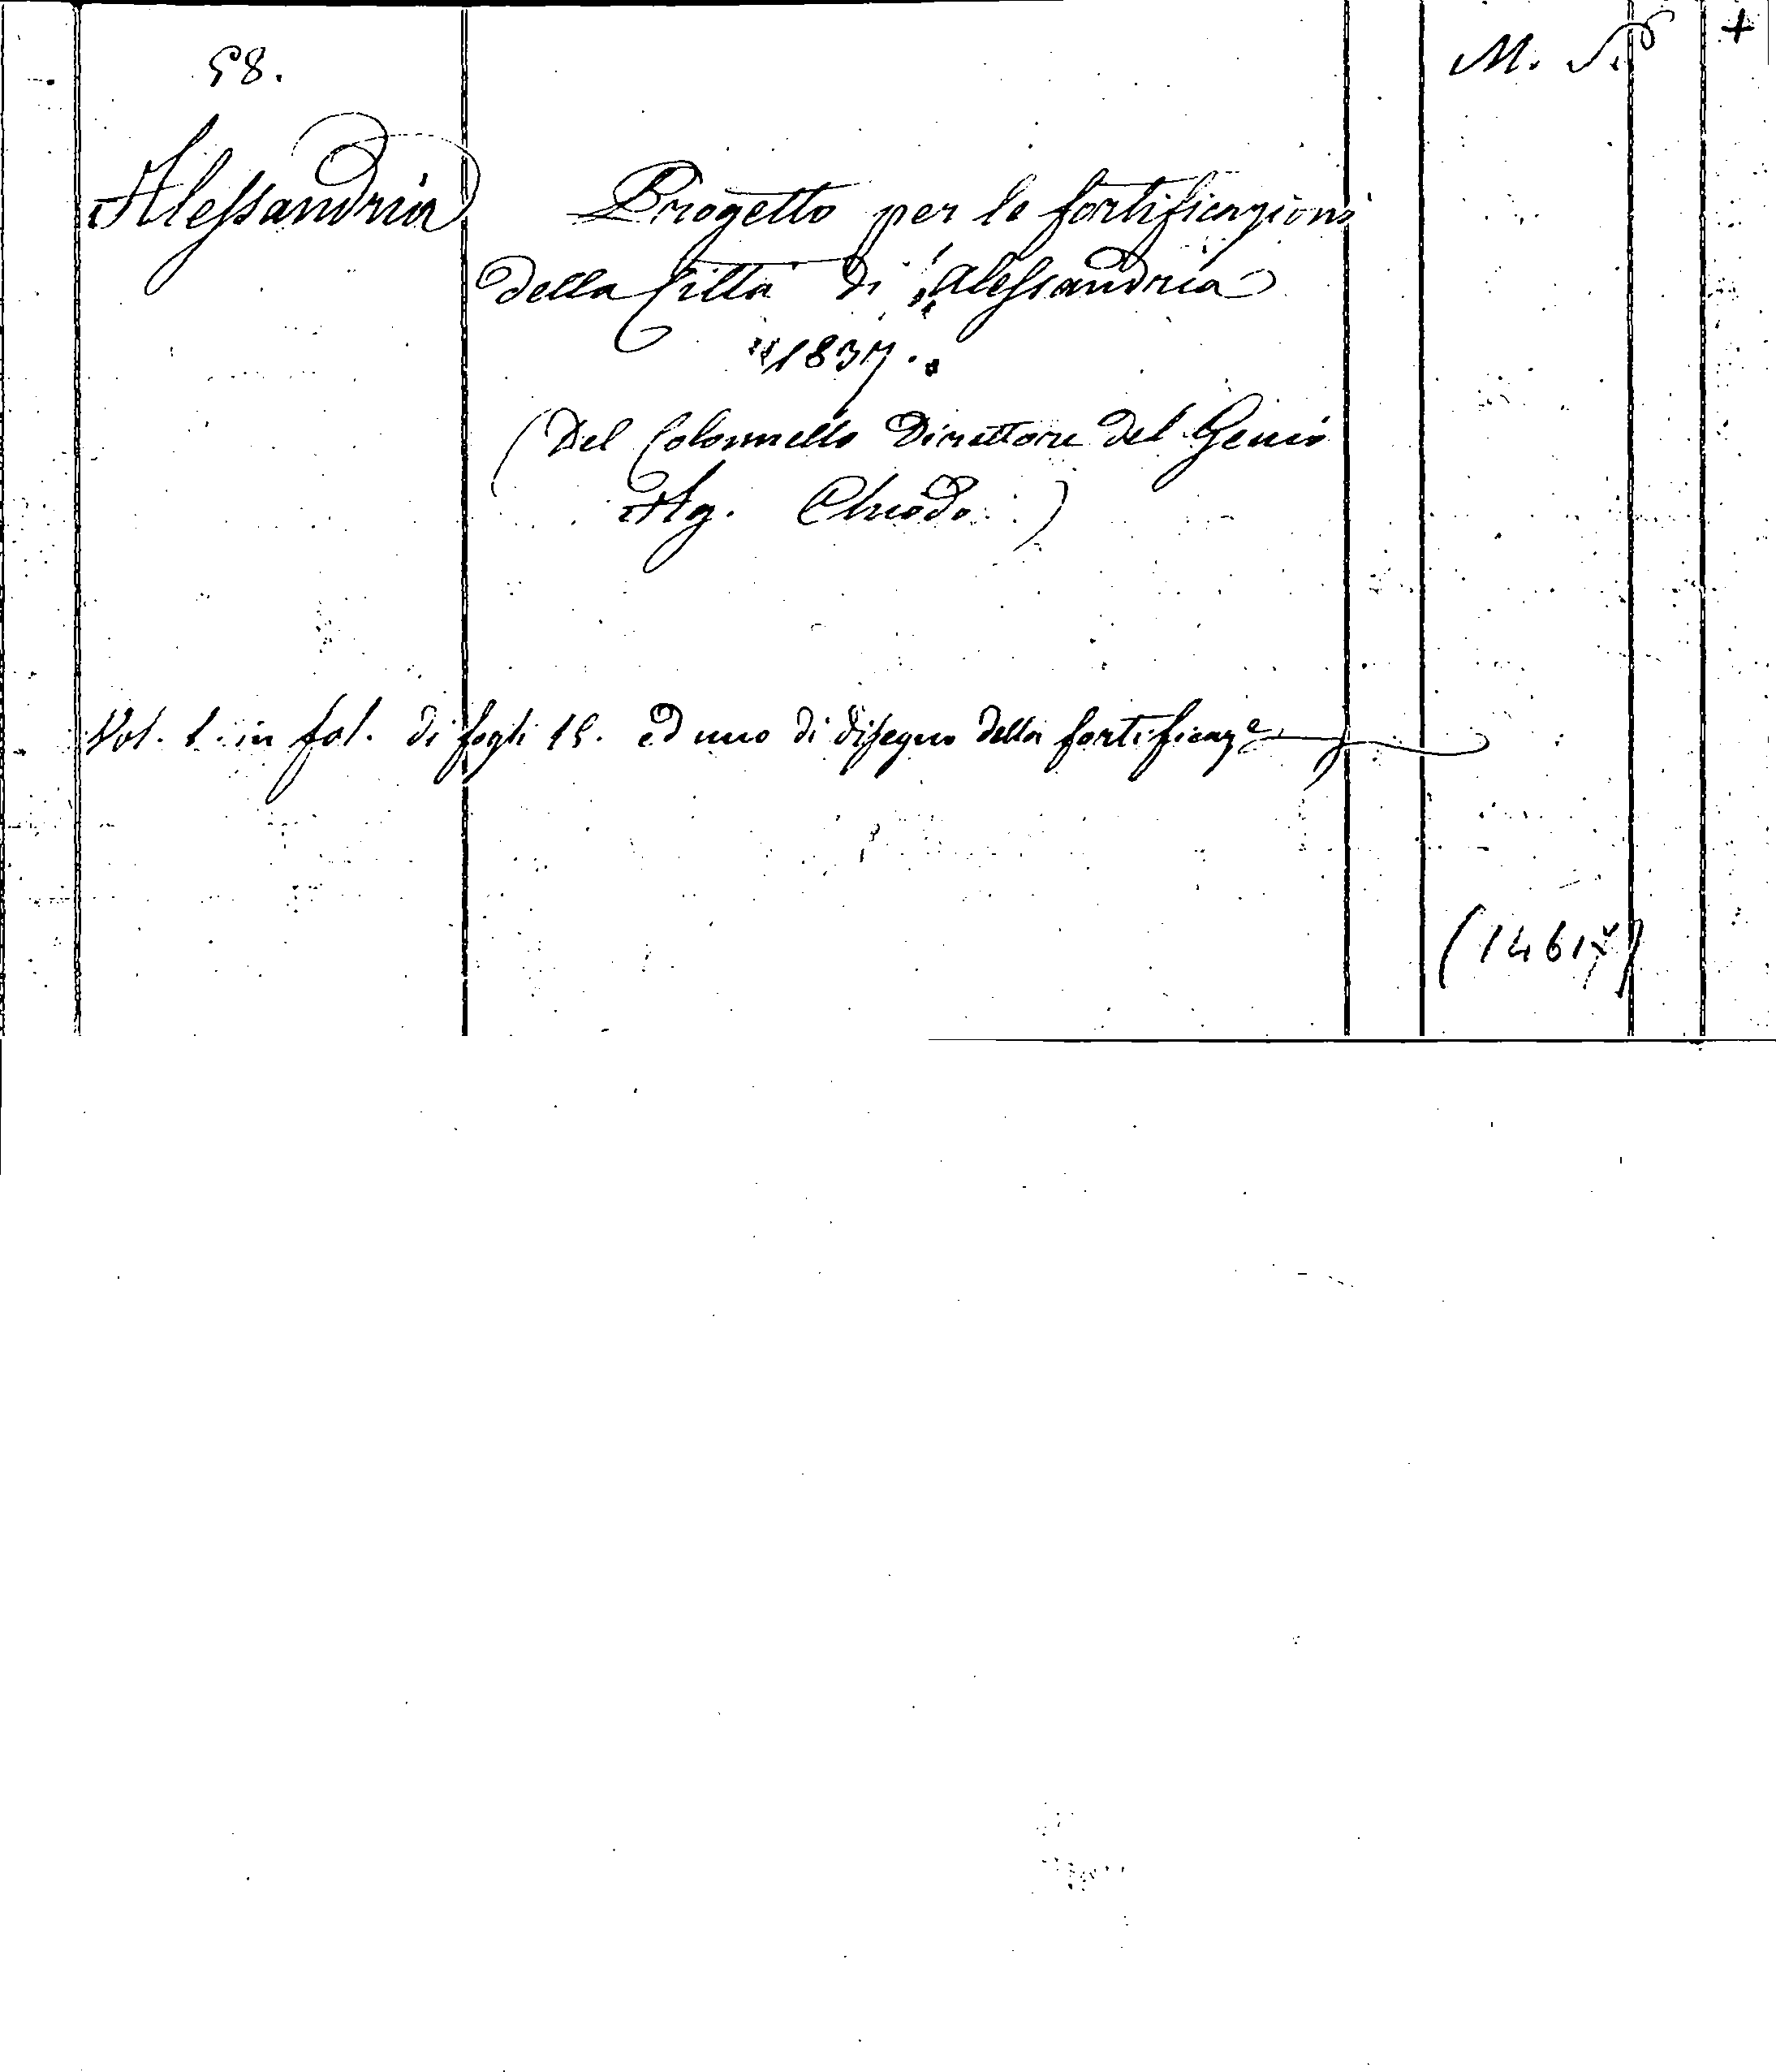 58.
M. S. +
Alessandria
Progetto per le fortificazioni
della Città di Alessandria
1837.
(Del Colonnello Direttore del Genio
Ag. Chiodo.)
Vol. 1. in fol. di fogli 15. ed uno di disegno della fortificaz.e
(14617)